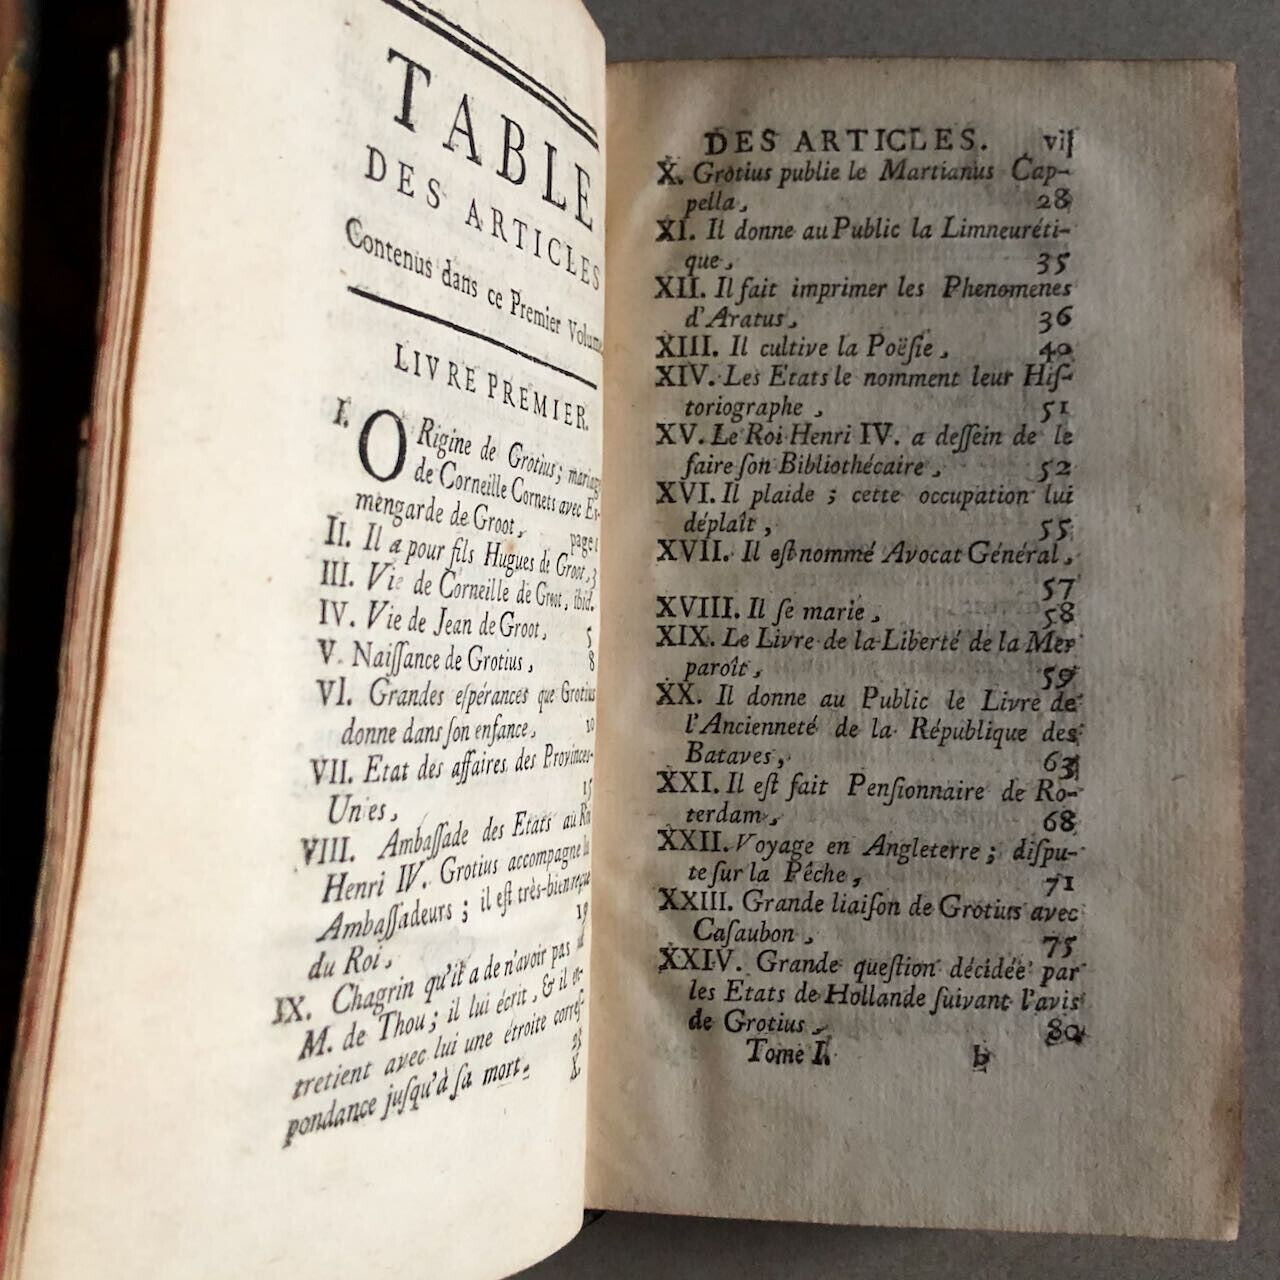 TABLE
DES ARTICLES
Contenus dans ce Premier Volume.
LIVRE PREMIER.
I. ORigine de Grotius; mariage
de Corneille Cornets avec Er-
mengarde de Groot, page 1
II. Il a pour fils Hugues de Groot, 3
III. Vie de Corneille de Groot, ibid.
IV. Vie de Jean de Groot, 5
V. Naiſſance de Grotius, 8
VI. Grandes eſpérances que Grotius
donne dans ſon enfance, 10
VII. Etat des affaires des Provinces-
Unies, 15
VIII. Ambaſſade des Etats au Roi
Henri IV. Grotius accompagne les
Ambaſſadeurs; il eſt très-bien reçu
du Roi, 19
IX. Chagrin qu'il a de n'avoir pas vû
M. de Thou; il lui écrit, & il en-
tretient avec lui une étroite correſ-
pondance juſqu'à ſa mort. 25
X.
DES ARTICLES. vij
X. Grotius publie le Martianus Cap-
pella, 28
XI. Il donne au Public la Limneuréti-
que, 35
XII. Il fait imprimer les Phenomenes
d'Aratus, 36
XIII. Il cultive la Poëſie, 40
XIV. Les Etats le nomment leur Hiſ-
toriographe, 51
XV. Le Roi Henri IV. a deſſein de le
faire ſon Bibliothécaire, 52
XVI. Il plaide; cette occupation lui
déplaît, 55
XVII. Il eſt nommé Avocat Général,
57
XVIII. Il ſe marie, 58
XIX. Le Livre de la Liberté de la Mer
paroît, 59
XX. Il donne au Public le Livre de
l'Ancienneté de la République des
Bataves, 63
XXI. Il eſt fait Penſionnaire de Ro-
terdam, 68
XXII. Voyage en Angleterre; diſpu-
te ſur la Pêche, 71
XXIII. Grande liaiſon de Grotius avec
Caſaubon, 75
XXIV. Grande queſtion décidée par
les Etats de Hollande ſuivant l'avis
de Grotius, 80
Tome I. b